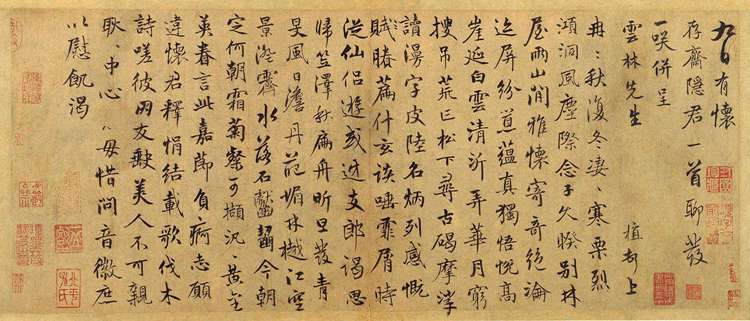 九日有懷
存齋隱君一首聊發
一咲併呈
雲林先生 植頓上
冉〻秋復冬淒〻寒栗烈
澒洞風塵際念子久暌別林
屋兩山間雅懷寄奇絕論
屏紛蕞蘊真獨悟悅高
崖延白雲清沂弄華月窮
搜吊荒丘松下尋古碣摩挲
讀漫字皮陸名炳列感慨
賦篇什玄談唾霏屑時
從仙侶遊或支郎謁思
歸笠澤秋扁舟昕旦發青
旻風日澹丹葩媚林樾江空
景澄霽水落石齧今朝
定何朝霜菊粲可擷汎〻黃金
英眷言此嘉節負痾志願
違懷君釋悁結載歌伐木
詩嗟彼朋友缺美人不可親
耿〻中心〻毋惜問音徽庶
以慰飢渴